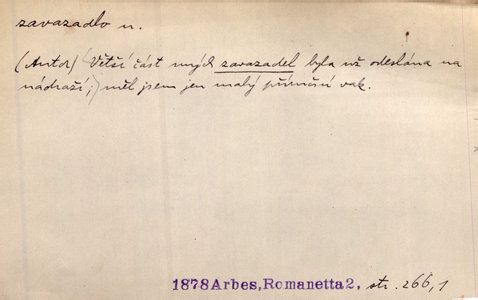 zavazadlo n.
(Autor) (Větší část mých zavazadel byla už odeslána na
nádraží;) měl jsem jen malý příruční vak.
1878 Arbes, Romanetta 2, str. 266,1